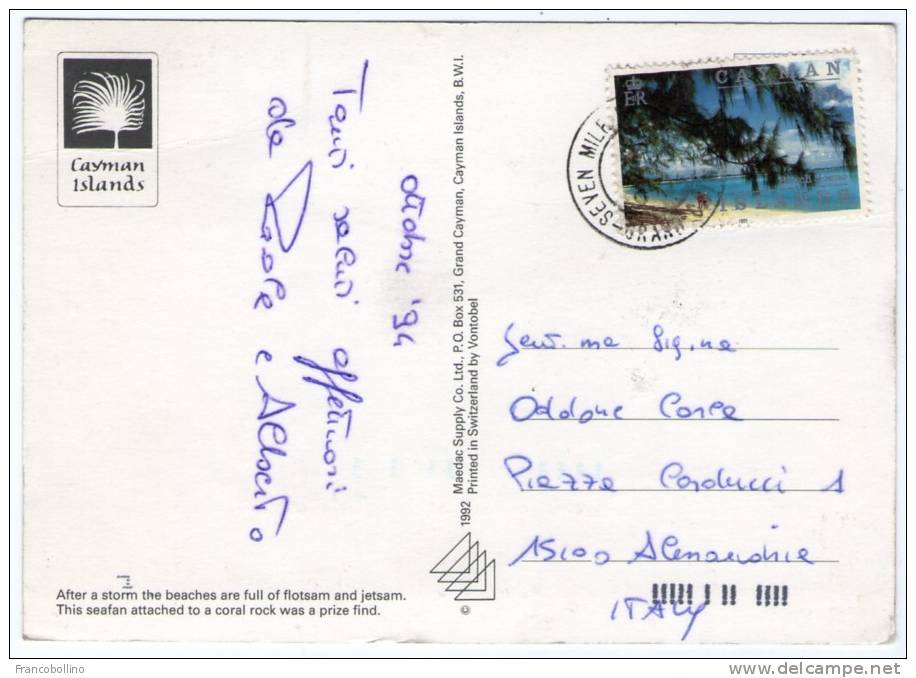 Cayman
Islands
CAYMAN
ISLANDS
E R
SEVEN MILE
GRAND
'94
Tanti saluti affettuosi
da Paola e Alberto
1992 Maedac Supply Co. Ltd., P.O. Box 531, Grand Cayman, Cayman Islands, B.W.I.
Printed in Switzerland by Vontobel
©
Gent.ma Sig.na
Oddone Carla
Piazza Carducci 1
15100 Alessandria
ITALY
After a storm the beaches are full of flotsam and jetsam.
This seafan attached to a coral rock was a prize find.
Francobollino
www.delcampe.net